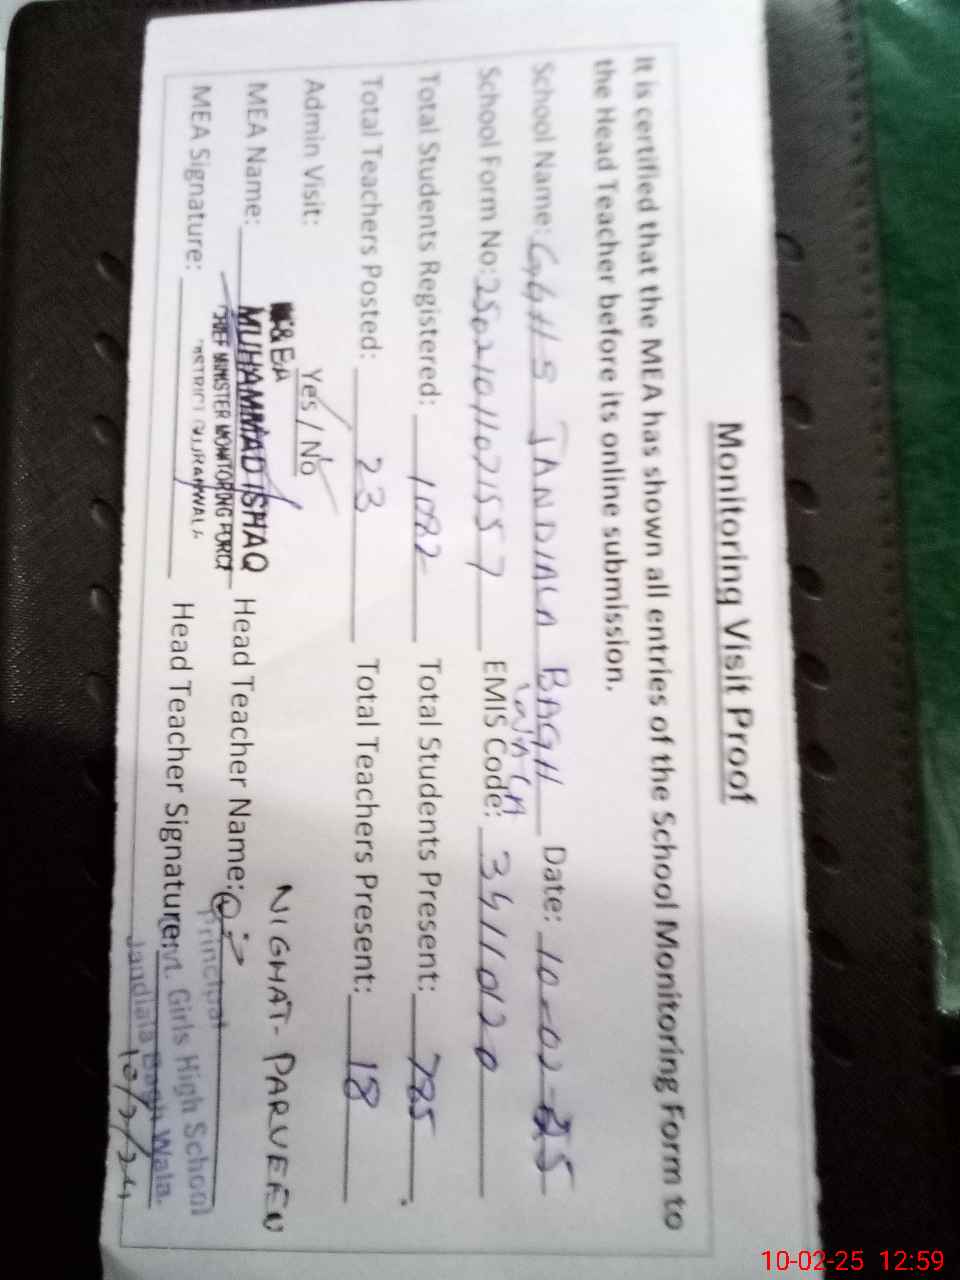 Monitoring Visit Proof
It is certified that the MEA has shown all entries of the School Monitoring Form to
the Head Teacher before its online submission.
School Name: GGHS JANDIALA BAGH Date: 10-02-25
WALA
School Form No: 2502101107155 7 EMIS Code: 34110120
Total Students Registered: 1082 Total Students Present: 785
Total Teachers Posted: 23 Total Teachers Present: 18
Admin Visit: Yes / No
NIGHAT PARVEEN
MEA Name: MUHAMMAD ISHAQ Head Teacher Name:
CHIEF MINISTER MONITORING FORCE
Principal
MEA Signature: Head Teacher Signature:
Girls High School
Jandiala Bagh Wala.
10/2/24
10-02-25 12:59